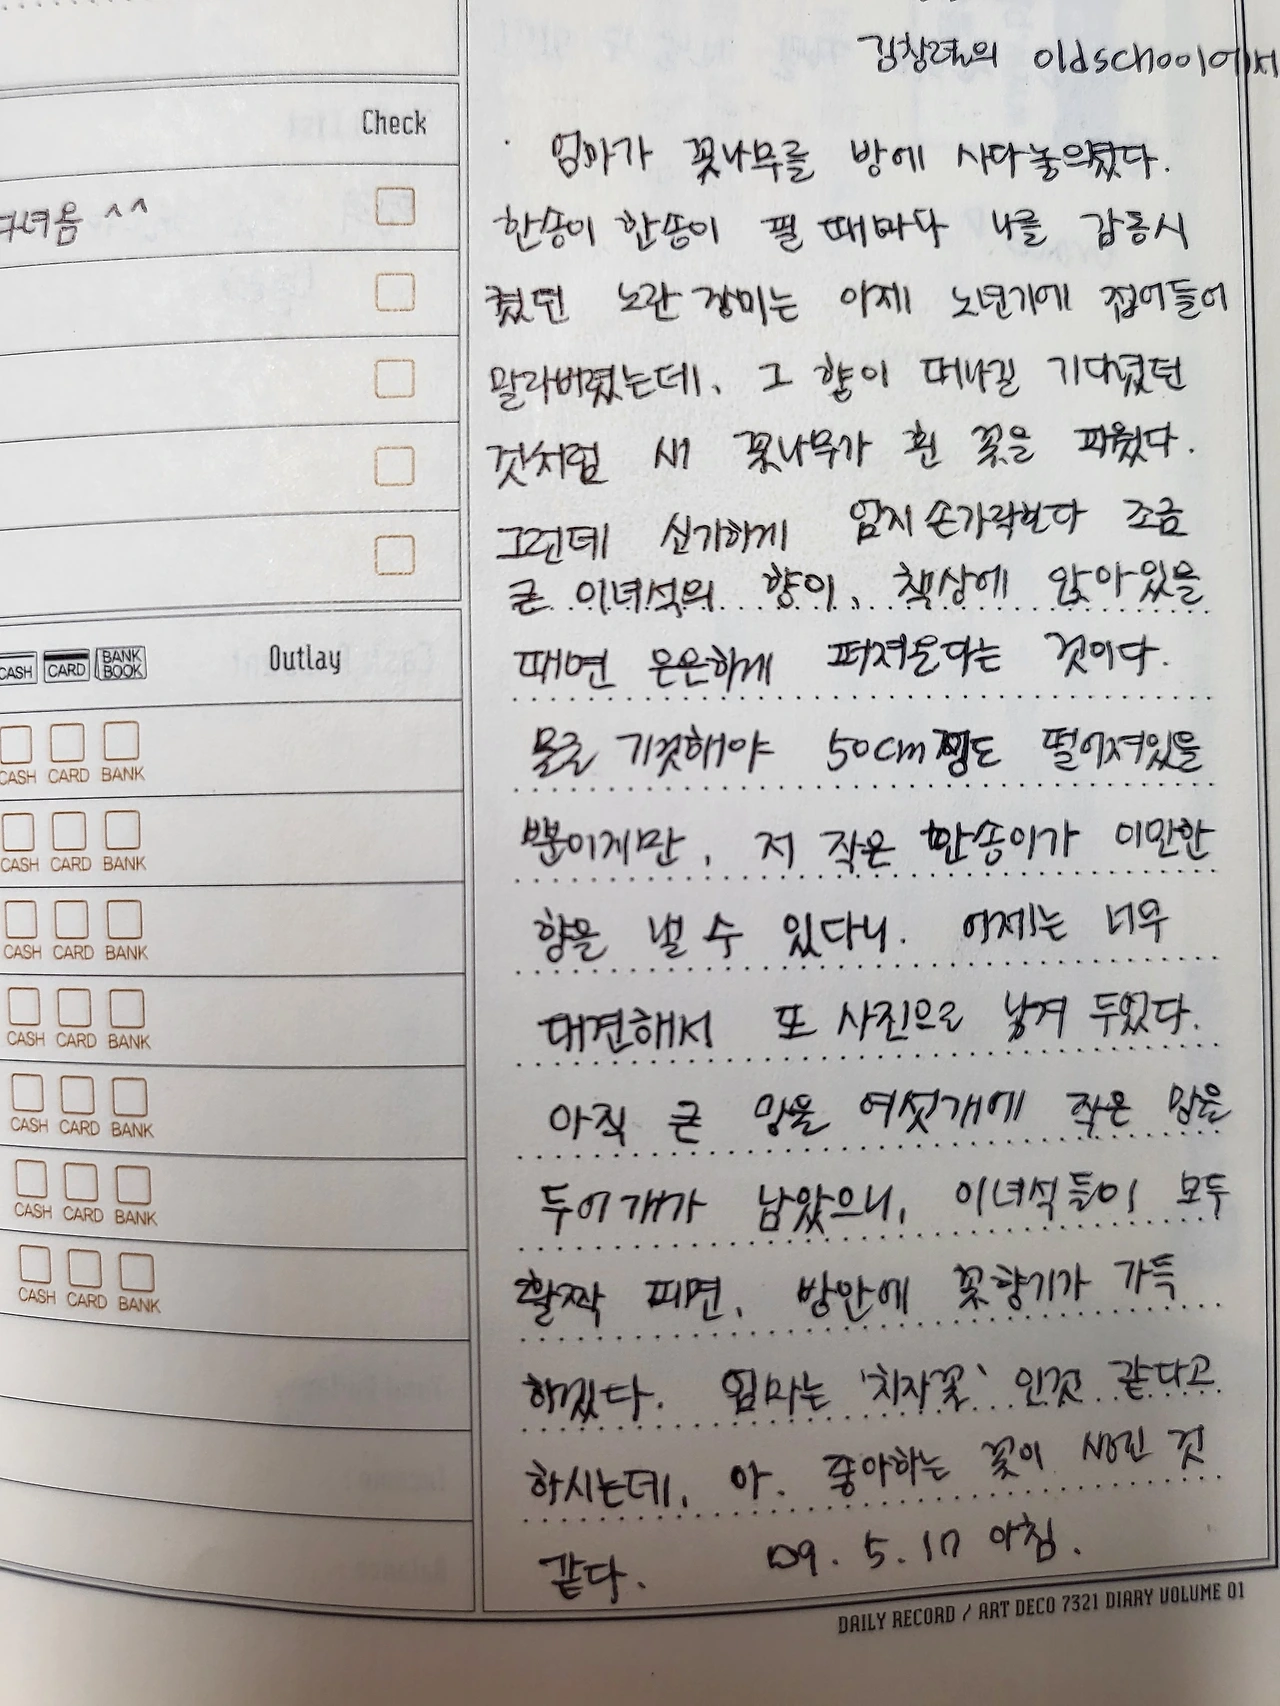 김창렬의 oldschool에서
Check
엄마가 꽃나무를 방에 사다놓으셨다.
한송이 한송이 필 때마다 나를 감동시
켰던 노란 장미는 이제 노년기에 접어들어
말라버렸는데, 그 향이 떠나길 기다렸던
것처럼 새 꽃나무가 흰 꽃을 피웠다.
그런데 신기하게 엄지손가락보다 조금
큰 이녀석의 향이, 책상에 앉아있을
때면 은은하게 퍼져온다는 것이다.
CASH CARD BANK BOOK Outlay
물론 기껏해야 50cm정도 떨어져있을
CASH CARD BANK
뿐이지만, 저 작은 한송이가 이만한
CASH CARD BANK
향을 낼 수 있다니. 어제는 너무
CASH CARD BANK
대견해서 또 사진으로 남겨 두었다.
CASH CARD BANK
아직 큰 망울 여섯개에 작은 망울
CASH CARD BANK
두어개가 남았으니, 이녀석들이 모두
CASH CARD BANK
활짝 피면, 방안에 꽃향기가 가득
CASH CARD BANK
하겠다. 엄마는 '치자꽃' 인것 같다고
하시는데, 아. 좋아하는 꽃이 생긴 것
같다. 09. 5. 17 아침.
DAILY RECORD / ART DECO 7321 DIARY VOLUME 01